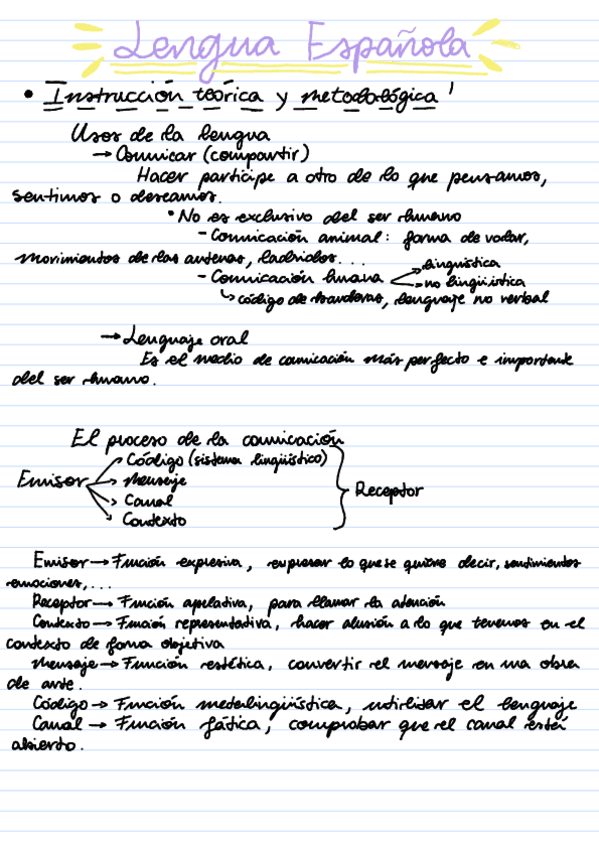 Lengua Española
• Instrucción teórica y metodológica
Usos de la lengua
→ Comunicar (compartir)
Hacer partícipe a otro de lo que pensamos,
sentimos o deseamos.
• No es exclusivo del ser humano
- Comunicación animal: forma de volar,
movimientos de las antenas, ladridos...
- Comunicación humana
lingüística
no lingüística
↳ código de banderas, lenguaje no verbal
→ Lenguaje oral
Es el medio de comunicación más perfecto e importante
del ser humano.
El proceso de la comunicación
Código (sistema lingüístico)
Emisor
Mensaje
Canal
Contexto
Receptor
Emisor → Función expresiva, expresar lo que se quiere decir, sentimientos
emociones,...
Receptor → Función apelativa, para llamar la atención
Contexto → Función representativa, hacer alusión a lo que tenemos en el
contexto de forma objetiva
Mensaje → Función estética, convertir el mensaje en una obra
de arte.
Código → Función metalingüística, utilizar el lenguaje
Canal → Función fática, comprobar que el canal está
abierto.